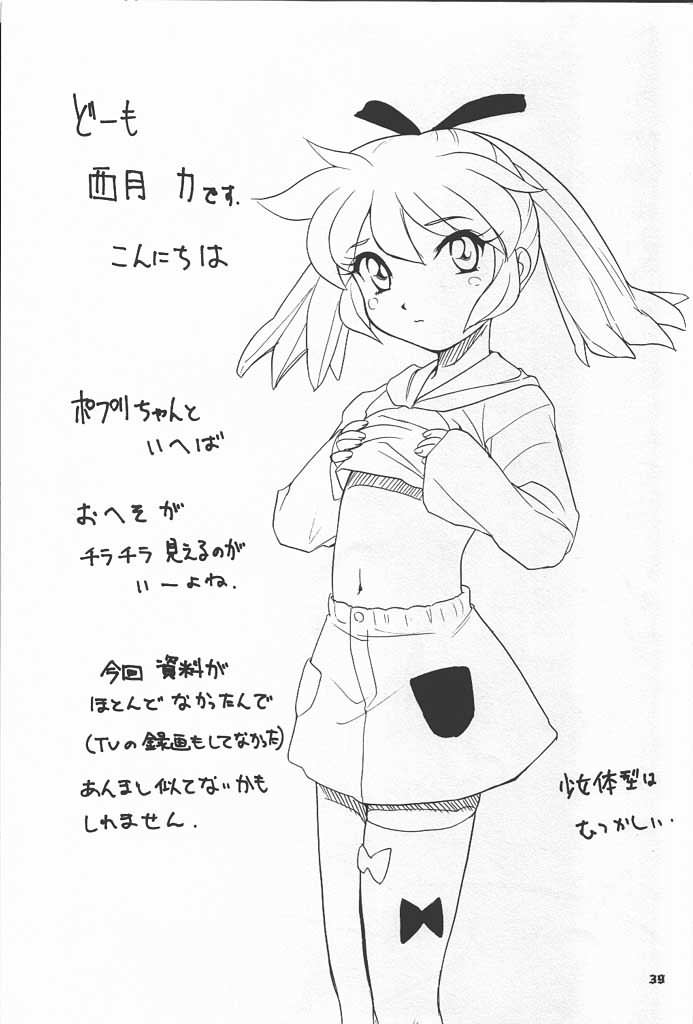 どーも
西月 力です.
こんにちは
ポプリちゃんと
いへば
おへそが
チラチラ 見えるのが
いーよね.
今回 資料が
ほとんどなかったんで
(TVの録画もしてなかった)
あんまし似てないかも
しれません.
少女体型は
むつかしい.
39